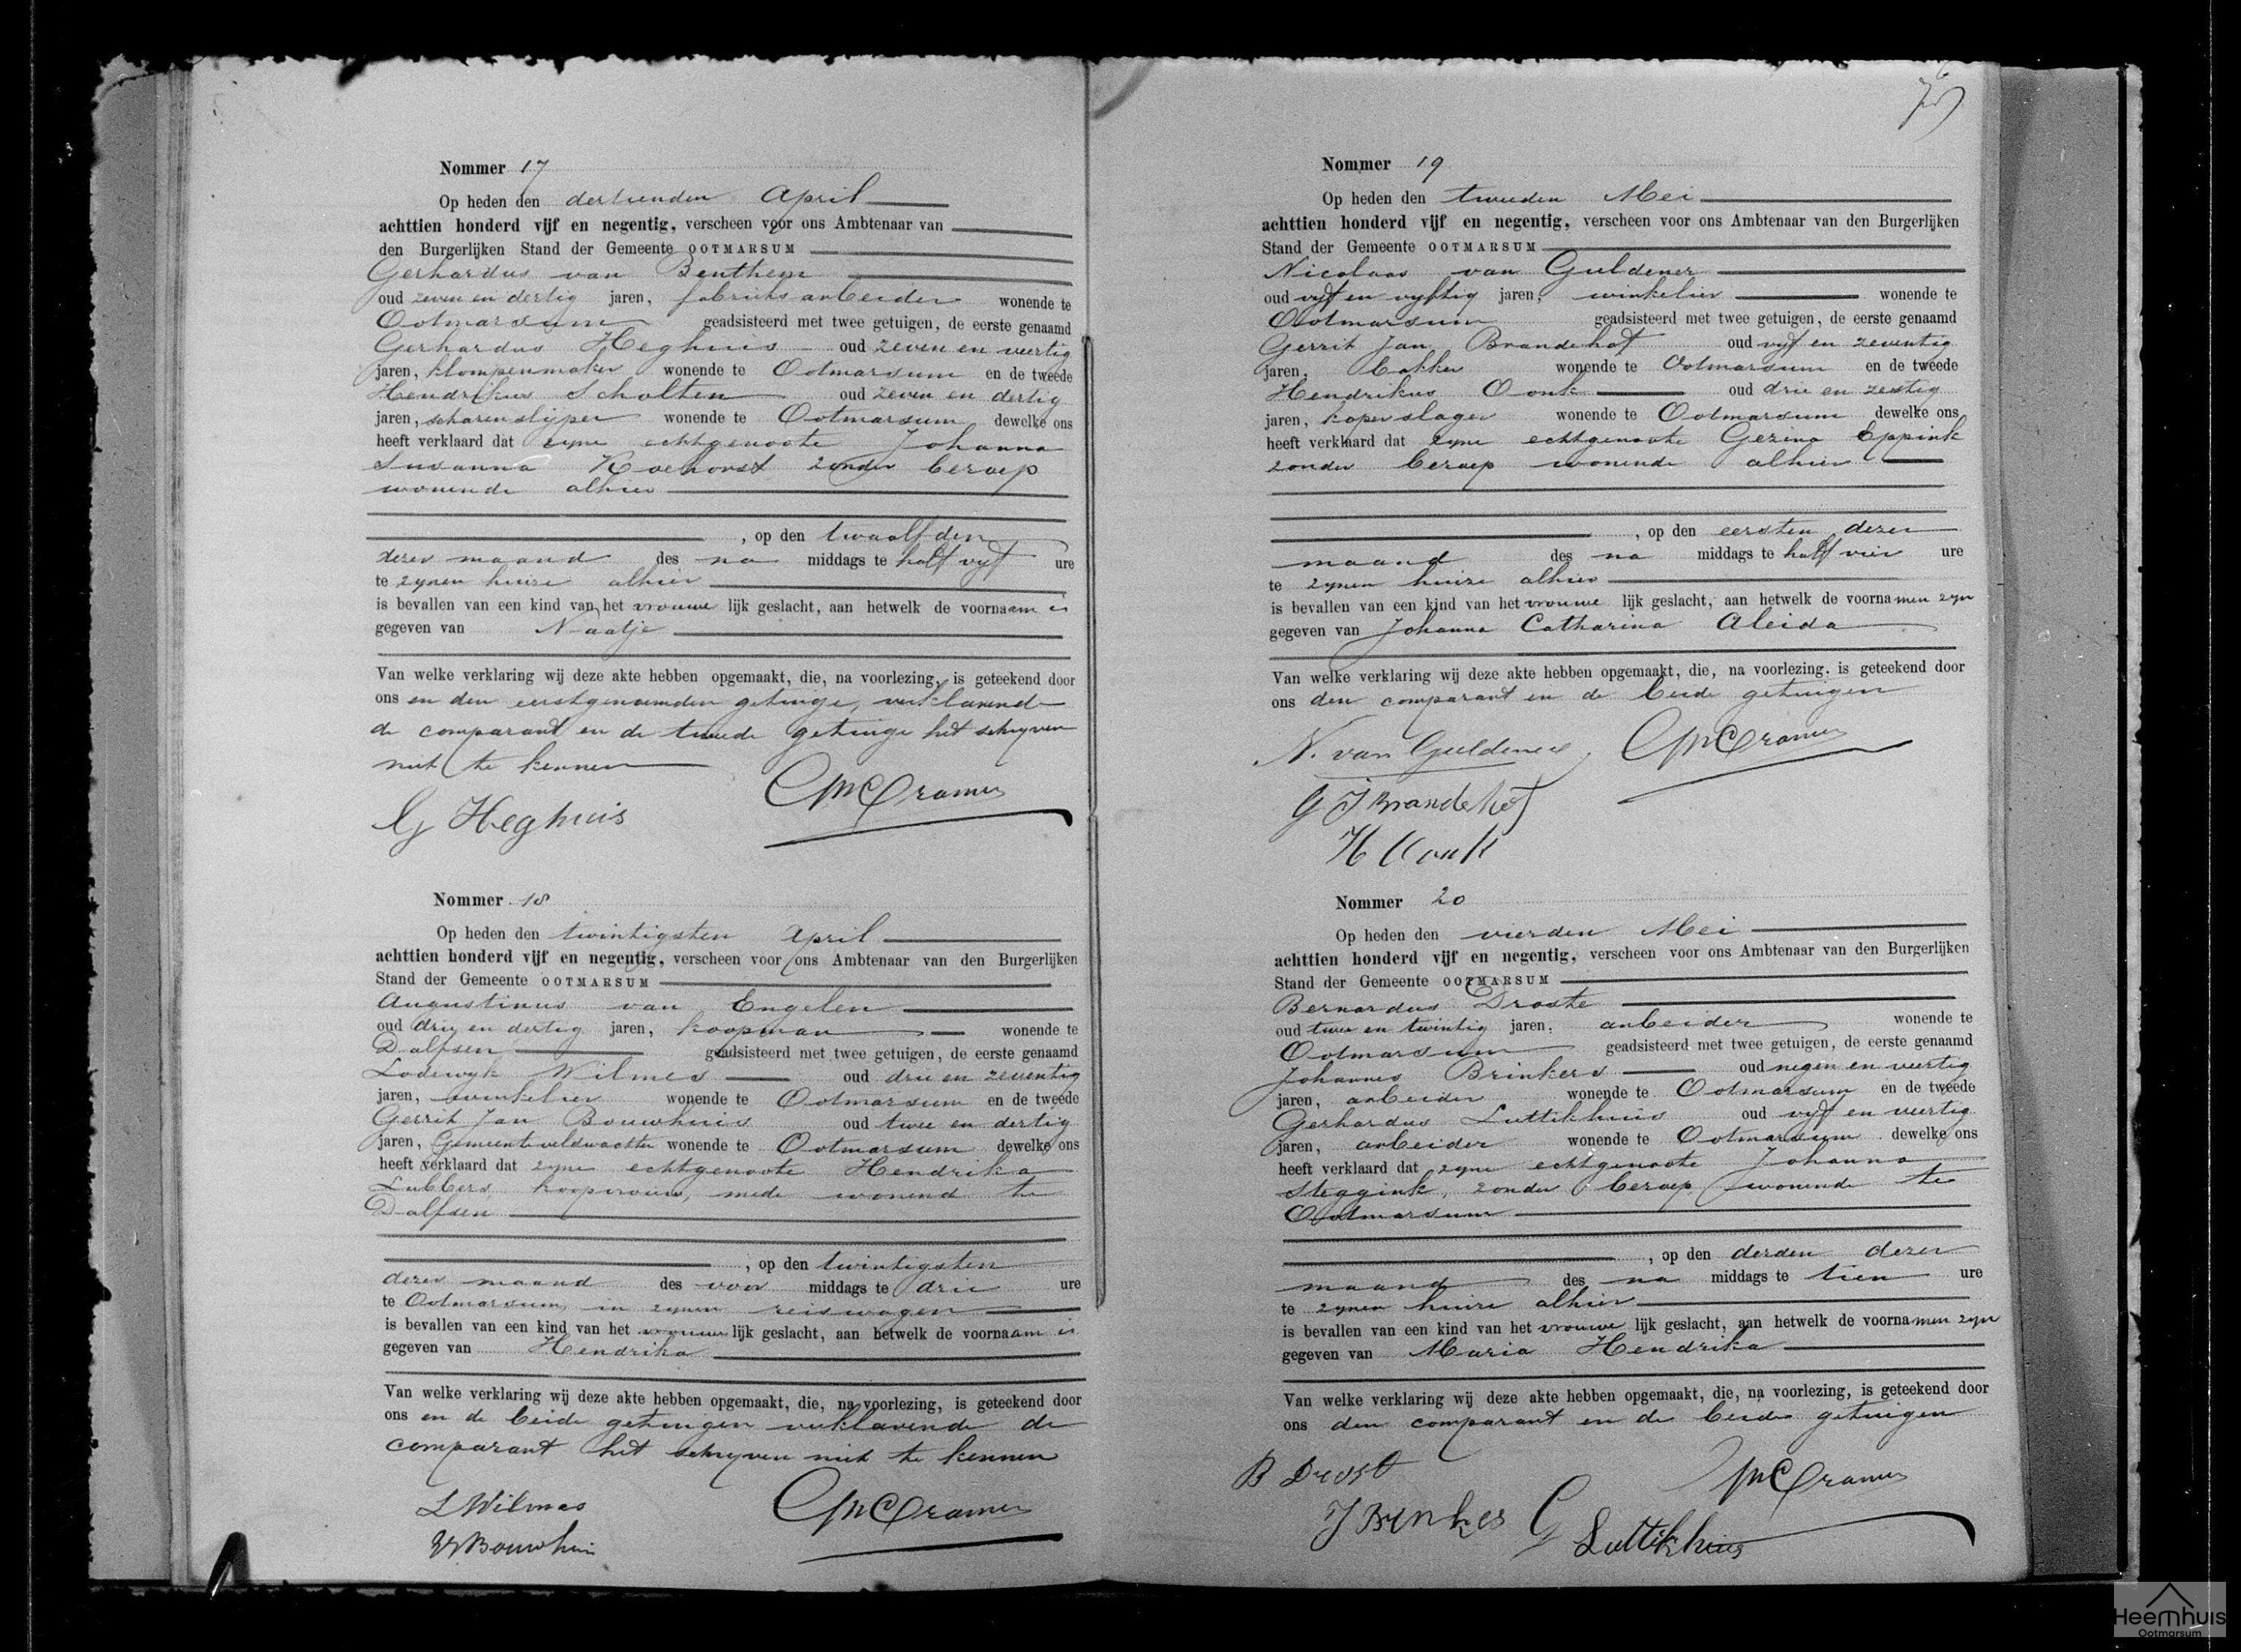 Nommer 17
Op heden den dertienden April
achttien honderd vijf en negentig, verscheen voor ons Ambtenaar van
den Burgerlijken Stand der Gemeente OOTMARSUM
Gerhardus van Benthem
oud zeven en dertig jaren, fabrieksarbeider wonende te
Ootmarsum geadsisteerd met twee getuigen, de eerste genaamd
Gerhardus Heghuis oud zeven en veertig
jaren, klompenmaker wonende te Ootmarsum en de tweede
Hendrikus Scholten oud zeven en dertig
jaren, scharenslijper wonende te Ootmarsum dewelke ons
heeft verklaard dat zyne echtgenoote Johanna
Susanna Koehorst zonder beroep
wonende alhier
, op den twaalfden
dezer maand des na middags te half vyf ure
te zynen huize alhier
is bevallen van een kind van het vrouwe lijk geslacht, aan hetwelk de voornaam is
gegeven van Naatje
Van welke verklaring wij deze akte hebben opgemaakt, die, na voorlezing, is geteekend door
ons en den eerstgenoemden getuige, verklarende
de comparant en de tweede getuige het schryven
niet te kennen
G Heghuis
Cramer
Nommer 18
Op heden den twintigsten April
achttien honderd vijf en negentig, verscheen voor ons Ambtenaar van den Burgerlijken
Stand der Gemeente OOTMARSUM
Augustinus van Engelen
oud drie en dertig jaren, koopman wonende te
Dalfsen geadsisteerd met twee getuigen, de eerste genaamd
Lodewyk Wilmes oud drie en zeventig
jaren, winkelier wonende te Ootmarsum en de tweede
Gerrit Jan Bouwhuis oud twee en dertig
jaren, Gemeenteveldwachter wonende te Ootmarsum dewelke ons
heeft verklaard dat zyne echtgenoote Hendrika
Lubbers koopvrouw, mede wonend te
Dalfsen
, op den twintigsten
dezer maand des voor middags te drie ure
te Ootmarsum in zynen reiswagen
is bevallen van een kind van het vrouwe lijk geslacht, aan hetwelk de voornaam is
gegeven van Hendrika
Van welke verklaring wij deze akte hebben opgemaakt, die, na voorlezing, is geteekend door
ons en de beide getuigen verklarende de
comparant het schryven niet te kennen
L Wilmes
Cramer
GJ Bouwhuis
Nommer 19
Op heden den tweeden Mei
achttien honderd vijf en negentig, verscheen voor ons Ambtenaar van den Burgerlijken
Stand der Gemeente OOTMARSUM
Nicolaas van Guldener
oud vyf en vyftig jaren, winkelier wonende te
Ootmarsum geadsisteerd met twee getuigen, de eerste genaamd
Gerrit Jan Brandehof oud vyf en zeventig
jaren, bakker wonende te Ootmarsum en de tweede
Hendrikus Oonk oud drie en zestig
jaren, koperslager wonende te Ootmarsum dewelke ons
heeft verklaard dat zyne echtgenoote Gezina Eppink
zonder beroep wonende alhier
, op den eersten dezer
maand des na middags te half vier ure
te zynen huize alhier
is bevallen van een kind van het vrouwe lijk geslacht, aan hetwelk de voornamen zyn
gegeven van Johanna Catharina Aleida
Van welke verklaring wij deze akte hebben opgemaakt, die, na voorlezing, is geteekend door
ons den comparant en de beide getuigen
N. van Guldener
Cramer
G J Brandehof
H Oonk
Nommer 20
Op heden den vierden Mei
achttien honderd vijf en negentig, verscheen voor ons Ambtenaar van den Burgerlijken
Stand der Gemeente OOTMARSUM
Bernardus Droste
oud twee en twintig jaren, arbeider wonende te
Ootmarsum geadsisteerd met twee getuigen, de eerste genaamd
Johannes Brinkers oud negen en veertig
jaren, arbeider wonende te Ootmarsum en de tweede
Gerhardus Luttikhuis oud vyf en veertig
jaren, arbeider wonende te Ootmarsum dewelke ons
heeft verklaard dat zyne echtgenoote Johanna
Steggink, zonder beroep wonende te
Ootmarsum
, op den derden dezer
maand des na middags te tien ure
te zynen huize alhier
is bevallen van een kind van het vrouwe lijk geslacht, aan hetwelk de voornamen zyn
gegeven van Maria Hendrika
Van welke verklaring wij deze akte hebben opgemaakt, die, na voorlezing, is geteekend door
ons den comparant en de beide getuigen
B Drost
Cramer
J Brinkes
G Luttikhuis
Heemhuis
Ootmarsum